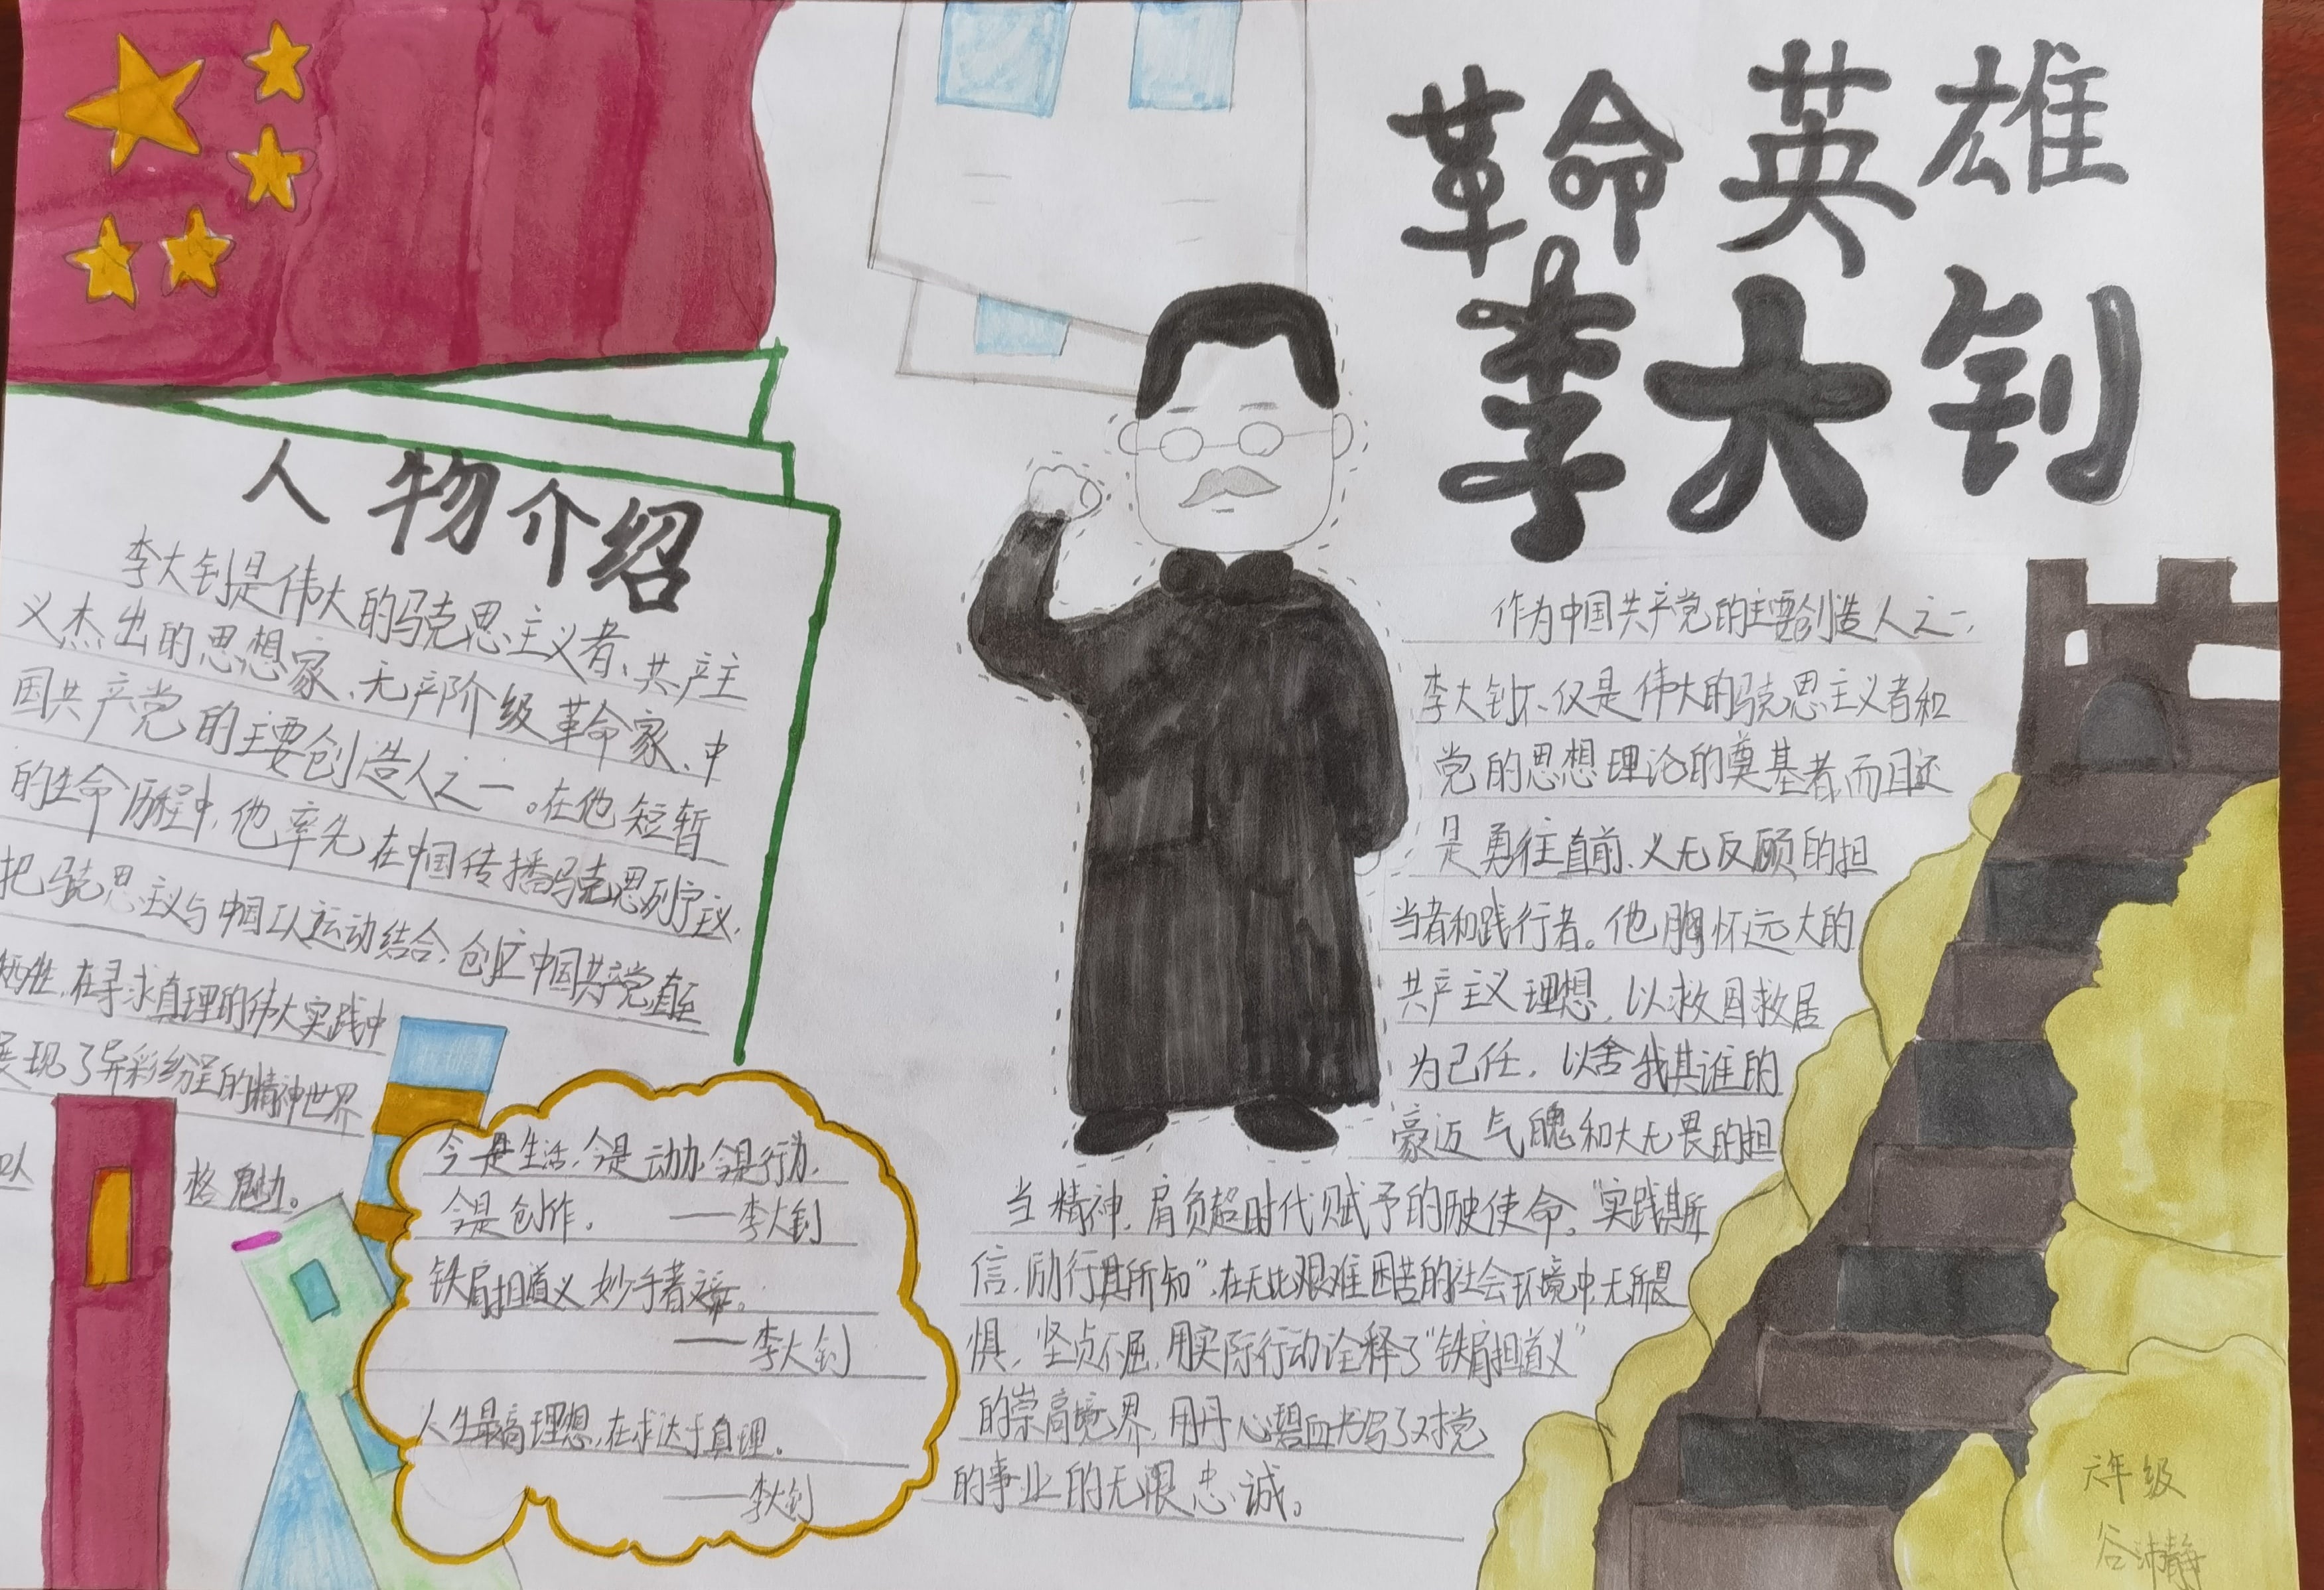 革命英雄
李大钊
人物介绍
李大钊是伟大的马克思主义者、共产主
义杰出的思想家、无产阶级革命家、中
国共产党的主要创造人之一。在他短暂
的生命历程中,他率先在中国传播马克思列宁主义,
把马克思主义与中国工人运动结合,创立中国共产党直至
牺牲,在寻求真理的伟大实践中
展现了异彩纷呈的精神世界
以 格魅力。
今是生活,今是动力,今是行为,
今是创作。 ——李大钊
铁肩担道义 妙手著文章。
——李大钊
人生最高理想,在求达于真理。
——李大钊
作为中国共产党的主要创造人之一,
李大钊不仅是伟大的马克思主义者和
党的思想理论的奠基者,而且还
是勇往直前、义无反顾的担
当者和践行者。他胸怀远大的
共产主义理想,以救国救居
为己任,以舍我其谁的
豪迈气魄和大无畏的担
当精神,肩负起时代赋予的使命。“实践其所
信,励行其所知”,在无比艰难困苦的社会环境中,无所畏
惧,坚贞不屈,用实际行动诠释了“铁肩担道义”
的崇高境界,用丹心碧血书写了对党
的事业的无限忠诚。
六年级
谷沛静